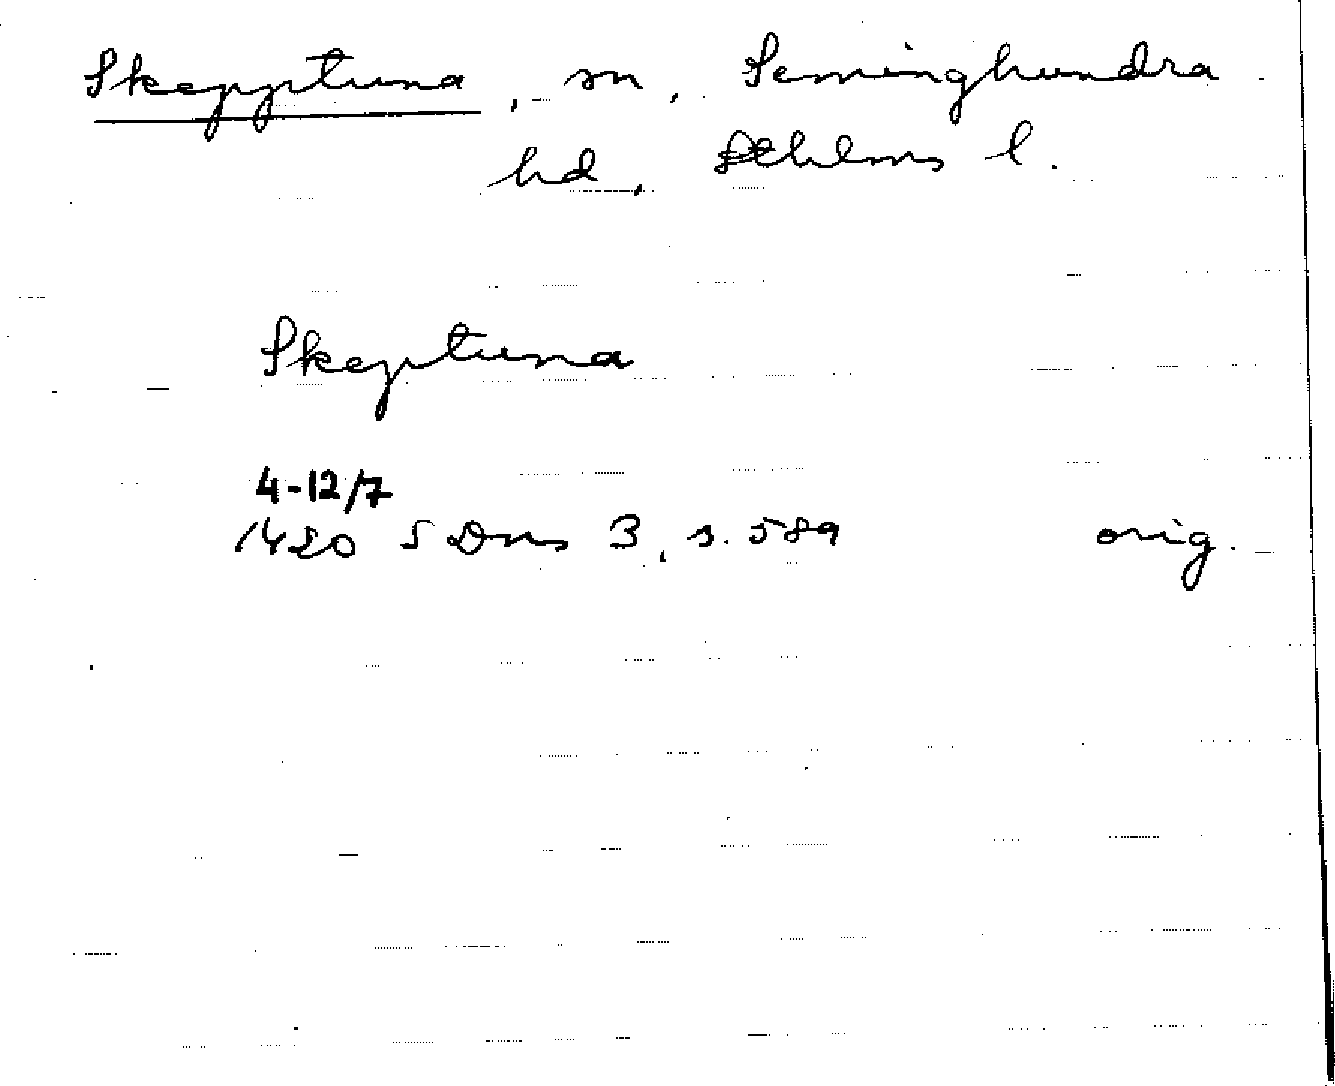 Skepptuna, sn, Seminghundra
hd, Sthlms l.
Skeptuna
4-12/7
1420 SDns 3, s. 589 orig.